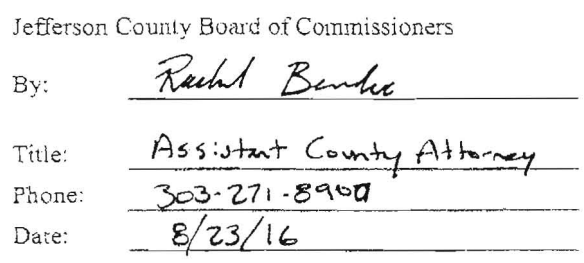 Jefferson County Board of Commissioners
By: Rachel Bender
Title: Assistant County Attorney
Phone: 303-271-8900
Date: 8/23/16